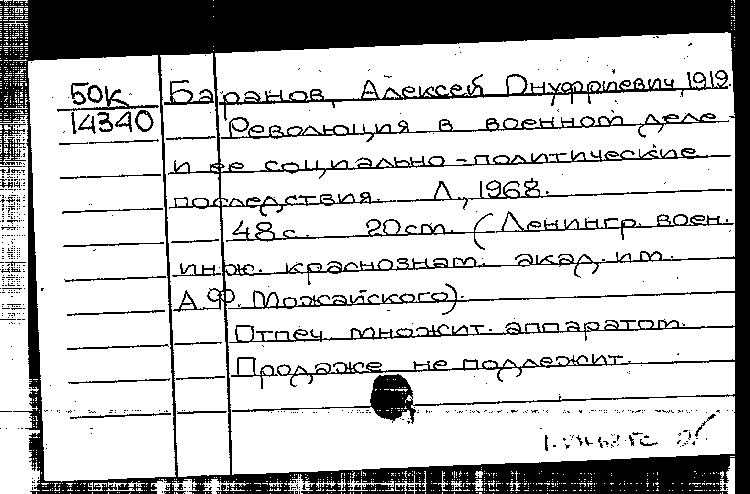 50к Баранов, Алексей Онуфриевич, 1919
14340 Революция в военном деле
и ее социально-политические
последствия. Л., 1968.
48 с. 20 cm. (Ленингр. воен.
инж. краснознам. акад. им.
А.Ф. Можайского).
Отпеч. множит. аппаратом.
Продаже не подлежит.